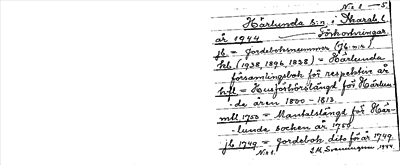 No 1 — 5.
Härlunda s:n, i Skarab. l.
år 1944 — Förkortningar
jb = Jordeboksnummer (Jb. n:o)
hb (1938, 1896, 1828) = Härlunda
församlingsbok för respektive år
hfl = Husförhörslängd för Härlun-
da åren 1800 - 1813.
mtl 1750 = Mantalslängd för Här-
lunda socken år 1750
jb 1749 = Jordebok dito för år 1749.
No 1.